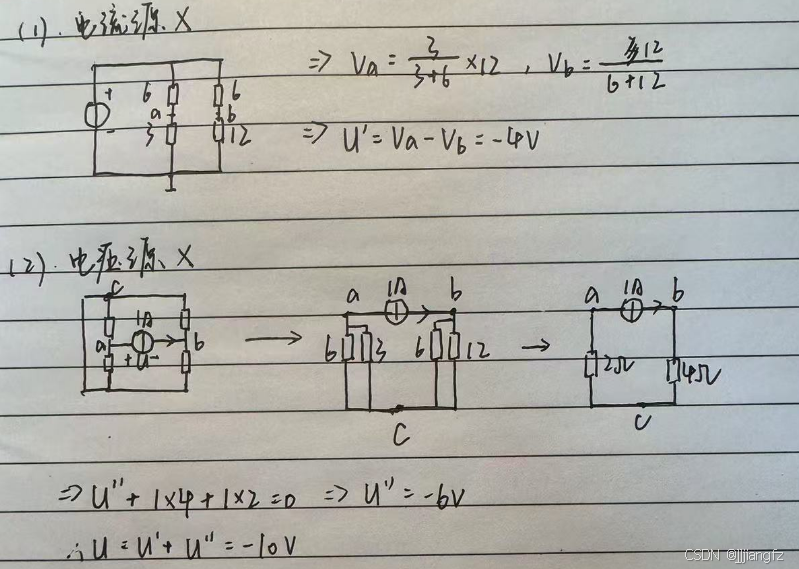 (1). 电流源 X
+
-
6
a
3
6
b
12
⇒ Va = 3/(3+6) ×12 , Vb = 12/(6+12)
⇒ U' = Va - Vb = -4V
(2). 电压源 X
C
1A
a
b
+ U -
→
a 1A b
6 3 6 12
C
→
a 1A b
2Ω 4Ω
C
⇒ U'' + 1×4 + 1×2 = 0 ⇒ U'' = -6V
∴ U = U' + U'' = -10V
CSDN @jjjiangfz